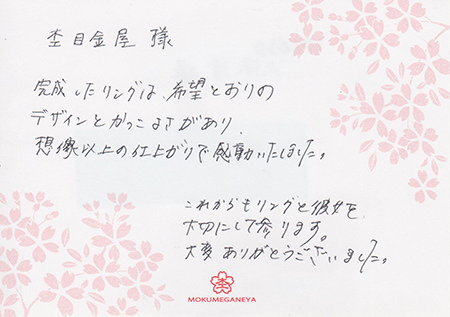 杢目金屋 様
完成したリングは、希望どおりの
デザインとかっこよさがあり、
想像以上の仕上がりで感動いたしました。
これからもリングと彼女を
大切にして参ります。
大変ありがとうございました。
杢
MOKUMEGANEYA